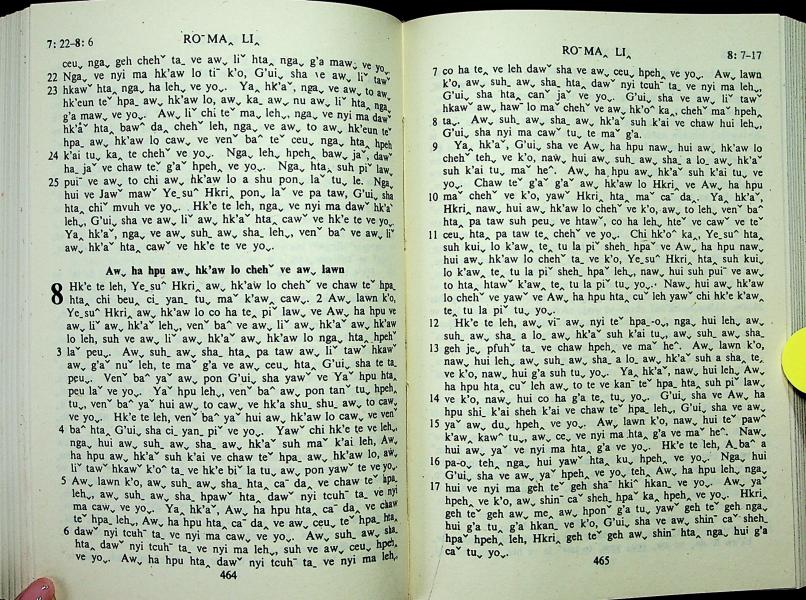 7: 22–8: 6
RO¯MAˬ LIˬ
ceuˬ ngaˬ geh chehˇ taˍ ve awˬ liˇ htaˬ ngaˬ g'a mawˬ ve yoˬ.
22 Ngaˬ ve nyi ma hk'aw lo tiˉ k'o, G'uiˬ sha ve awˬ liˇ tawˇ
23 hkawˇ htaˬ ngaˬ ha lehˬ ve yoˬ. Yaˬ hk'aˇ, ngaˬ ve aw to awˬ
hk'eunˇ teˇ hpaˬ awˬ hk'aw lo, awˬ kaˬ awˬ nu awˬ liˇ htaˬ ngaˬ
g'a mawˬ ve yoˬ. Awˬ liˇ chi teˇ maˬ lehˬ, ngaˬ ve nyi ma dawˇ
hk'aˇ htaˬ bawˆ daˬ chehˇ leh, ngaˬ ve aw to awˬ hk'eunˇ teˇ
hpaˬ awˬ hk'aw lo caw ve venˇ baˆ teˇ ceuˬ ngaˬ hta hpeh
24 k'ai tuˬ kaˬ te chehˇ ve yoˬ. Ngaˬ lehˬ hpehˬ baw jaˇ, dawˇ
haˍ jaˇ ve chaw teˇ g'aˇ hpehˬ ve yoˬ. Ngaˬ htaˬ suh piˇ lawˬ
25 puiˉ ve awˬ to chi awˬ hk'aw lo a shu ponˬ laˇ tuˬ le. Ngaˬ
hui ve Jawˇ mawˇ Yeˍsuˆ Hkriˬ ponˬ laˇ ve pa taw, G'uiˬ sha
htaˬ chiˇ mvuh ve yoˬ. Hk'e te leh, ngaˬ ve nyi ma dawˇ hk'aˇ
lehˬ, G'uiˬ sha ve awˬ liˇ awˬ hk'aˇ htaˬ cawˇ ve hk'e te ve yoˬ.
Yaˬ hk'aˇ, ngaˬ ve awˬ suhˬ awˬ shaˍ lehˬ, venˇ baˆ ve awˬ liˇ
awˬ hk'aˇ htaˬ cawˇ ve hk'e te ve yoˬ.
Awˬ ha hpu awˬ hk'aw lo chehˇ ve awˬ lawn
8 Hk'e te leh, Yeˍsuˆ Hkriˬ awˬ hk'aw lo chehˇ ve chaw teˇ hpaˍ
htaˬ chi beuˬ ciˬ yanˍ tuˬ maˇ k'awˬ cawˬ. 2 Awˬ lawn k'o,
Yeˍsuˆ Hkriˬ awˬ hk'aw lo co ha teˬ piˇ lawˬ ve Aw ha hpu ve
awˬ liˇ awˬ hk'aˇ lehˬ, venˇ baˆ ve awˬ liˇ awˬ hk'aˇ awˬ hk'aw
lo leh, suh ve awˬ liˇ awˬ hk'aˇ awˬ hk'aw lo ngaˬ htaˬ hpehˇ
3 laˇ peuˬ. Awˬ suhˬ awˬ shaˍ htaˬ pa taw awˬ liˇ tawˇ hkawˇ
awˬ g'aˇ nuˇ leh, te maˇ g'a ve awˬ ceuˬ htaˬ G'uiˬ sha te taˍ
peuˬ. Venˇ baˆ yaˇ awˬ pon G'uiˬ sha yawˇ ve Yaˇ hpu htaˬ
peu laˇ ve yoˬ. Yaˇ hpu lehˬ, venˇ baˆ awˬ pon tanˇ tuˬ hpehˬ
tuˬ, venˇ baˆ yaˇ hui awˬ to cawˬ ve hk'a shuˬ shuˬ awˬ to cawˬ
ve yoˬ. Hk'e te leh, venˇ baˆ yaˇ hui awˬ hk'aw lo cawˬ ve venˇ
4 baˆ htaˬ G'uiˬ sha ciˬ yanˬ piˇ ve yoˬ. Yawˇ chi hk'e te ve lehˬ,
ngaˬ hui awˬ suhˬ awˬ shaˍ awˬ hk'aˇ suh maˇ k'ai leh, Awˬ
ha hpu awˬ hk'aˇ suh k'ai ve chaw teˇ hpaˍ awˬ hk'aw lo, awˬ
liˇ tawˇ hkawˇ k'oˆ taˬ ve hk'e biˇ la tuˬ awˬ pon yaw te ve yoˬ.
5 Awˬ lawn k'o, awˬ suhˬ awˬ shaˍ htaˬ caˇ daˬ ve chaw teˇ hpaˍ
lehˬ, awˬ suhˬ awˬ shaˍ hpawˇ htaˬ dawˇ nyi tcuhˉ taˍ ve nyi
ma cawˬ ve yoˬ. Yaˬ hk'aˇ, Awˬ ha hpu htaˬ caˇ daˬ ve chaw
teˇ hpaˍ lehˬ, Awˬ ha hpu htaˬ caˇ daˬ ve awˬ ceuˬ teˇ hpaˍ htaˬ
6 dawˇ nyi tcuhˉ taˍ ve nyi ma cawˬ ve yoˬ. Awˬ suhˬ awˬ shaˍ
htaˬ dawˇ nyi tcuhˉ taˍ ve nyi ma lehˬ, suh ve awˬ ceuˬ hpehˬ
ve yoˬ. Awˬ ha hpu htaˬ dawˇ nyi tcuhˉ taˍ ve nyi ma lehˬ,
464
RO¯MAˬ LIˬ
8: 7–17
7 co ha teˬ ve leh dawˇ sha ve awˬ ceuˬ hpehˬ ve yoˬ. Awˬ lawn
k'o, awˬ suhˬ awˬ shaˍ htaˬ dawˇ nyi tcuhˉ taˍ ve nyi ma lehˬ,
G'uiˬ sha htaˬ canˇ jaˇ ve yoˬ. G'uiˬ sha ve awˬ liˇ tawˇ
hkawˇ awˬ hawˇ lo maˇ chehˇ ve awˬ hk'oˆ kaˬ, chehˇ maˇ hpehˬ
8 taˬ. Awˬ suhˬ awˬ shaˍ awˬ hk'aˇ suh k'ai ve chaw hui lehˬ,
G'uiˬ sha nyi ma cawˇ tuˬ te maˇ g'a.
9 Yaˬ hk'aˇ, G'uiˬ sha ve Aw ha hpu nawˬ hui awˬ hk'aw lo
chehˇ tehˬ ve k'o, nawˬ hui awˬ suhˬ awˬ shaˍ a loˍ awˬ hk'aˇ
suh k'ai tuˬ maˇ heˆ. Awˬ ha hpu awˬ hk'aˇ suh k'ai tuˬ ve
yoˬ. Chaw teˇ g'aˇ g'aˇ awˬ hk'aw lo Hkriˬ ve Awˬ ha hpu
10 maˇ chehˇ ve k'o, yawˇ Hkriˬ htaˬ maˇ caˇ daˬ. Yaˬ hk'aˇ,
Hkriˬ nawˬ hui awˬ hk'aw lo chehˇ ve k'o, aw to lehˬ venˇ baˆ
htaˬ pa taw suh peuˬ ve htawˇ, co ha lehˬ hteˇ ve cawˇ ve teˇ
11 ceuˬ htaˬ pa taw teˬ chehˇ ve yoˬ. Chi hk'oˆ kaˬ, Yeˍsuˆ htaˬ
suh kuiˬ lo k'awˬ teˬ tu la piˇ shehˍ hpaˇ ve Aw ha hpu nawˬ
hui awˬ hk'aw lo chehˇ taˬ ve k'o, Yeˍsuˆ Hkriˬ htaˬ suh kuiˬ
lo k'awˬ teˬ tu la piˇ shehˍ hpaˇ lehˬ, nawˬ hui suh puiˉ ve awˬ
to htaˬ htawˇ k'awˬ teˬ tu la piˇ tuˬ yoˬ. Nawˬ hui awˬ hk'aw
lo chehˇ ve yawˇ ve Awˬ ha hpu htaˬ cuˇ leh yawˇ chi hk'e k'awˬ
teˬ tu la piˇ tuˬ yoˬ.
12 Hk'e te leh, awˬ viˇ awˬ nyi teˇ hpaˍ-oˬ, ngaˬ hui lehˬ awˬ
suhˬ awˬ shaˍ a loˍ awˬ hk'aˇ suh k'ai tuˬ, awˬ suhˬ awˬ shaˍ
13 geh jeˬ pfuhˇ taˍ ve chaw hpehˬ ve maˇ heˆ. Awˬ lawn k'o,
nawˬ hui lehˬ awˬ suhˬ awˬ shaˍ a loˍ awˬ hk'aˇ suh a sha teˬ
ve k'o, nawˬ hui g'a suh tuˬ yoˬ. Yaˬ hk'aˇ, nawˬ hui lehˬ Aw
ha hpu htaˬ cuˇ leh awˬ to te ve kanˉ teˇ hpaˍ htaˬ suh piˇ lawˬ
14 ve k'o, nawˬ hui co ha g'a teˬ tuˬ yoˬ. G'uiˬ sha ve Awˬ ha
hpu shiˍ k'ai sheh k'ai ve chaw teˇ hpaˍ lehˬ, G'uiˬ sha ve awˬ
15 yaˇ awˬ duˬ hpehˬ ve yoˬ. Awˬ lawn k'o, nawˬ hui teˇ pawˇ
k'awˬ kawˆ tuˬ, awˬ ce ve nyi ma htaˬ g'a ve maˇ heˆ. Nawˬ
hui awˬ yaˇ ve nyi ma htaˬ g'a ve yoˬ. Hk'e te leh, Aˍbaˆ a
16 pa-oˬ tehˬ ngaˬ hui yawˇ htaˬ kuˬ hpehˬ ve yoˬ. Ngaˬ hui
G'uiˬ sha ve awˬ yaˇ hpehˬ ve yoˬ tehˬ Awˬ ha hpu leh ngaˬ
17 hui ve nyi ma geh teˇ geh shaˉ hkiˆ hkanˇ ve yoˬ. Awˬ yaˇ
hpehˬ ve k'o, awˬ shinˉ caˇ shehˍ hpaˇ kaˬ hpehˬ ve yoˬ. Hkriˬ
geh teˇ geh awˬ meˬ awˬ hponˇ g'a tuˬ yawˇ geh teˇ geh ngaˬ
hui g'a tuˬ g'a hkanˬ ve k'o, G'uiˬ sha ve awˬ shinˉ caˇ shehˍ
hpaˇ hpehˬ leh, Hkriˬ geh teˇ geh awˬ shinˉ htaˬ ngaˬ hui g'a
caˇ tuˬ yoˬ.
465